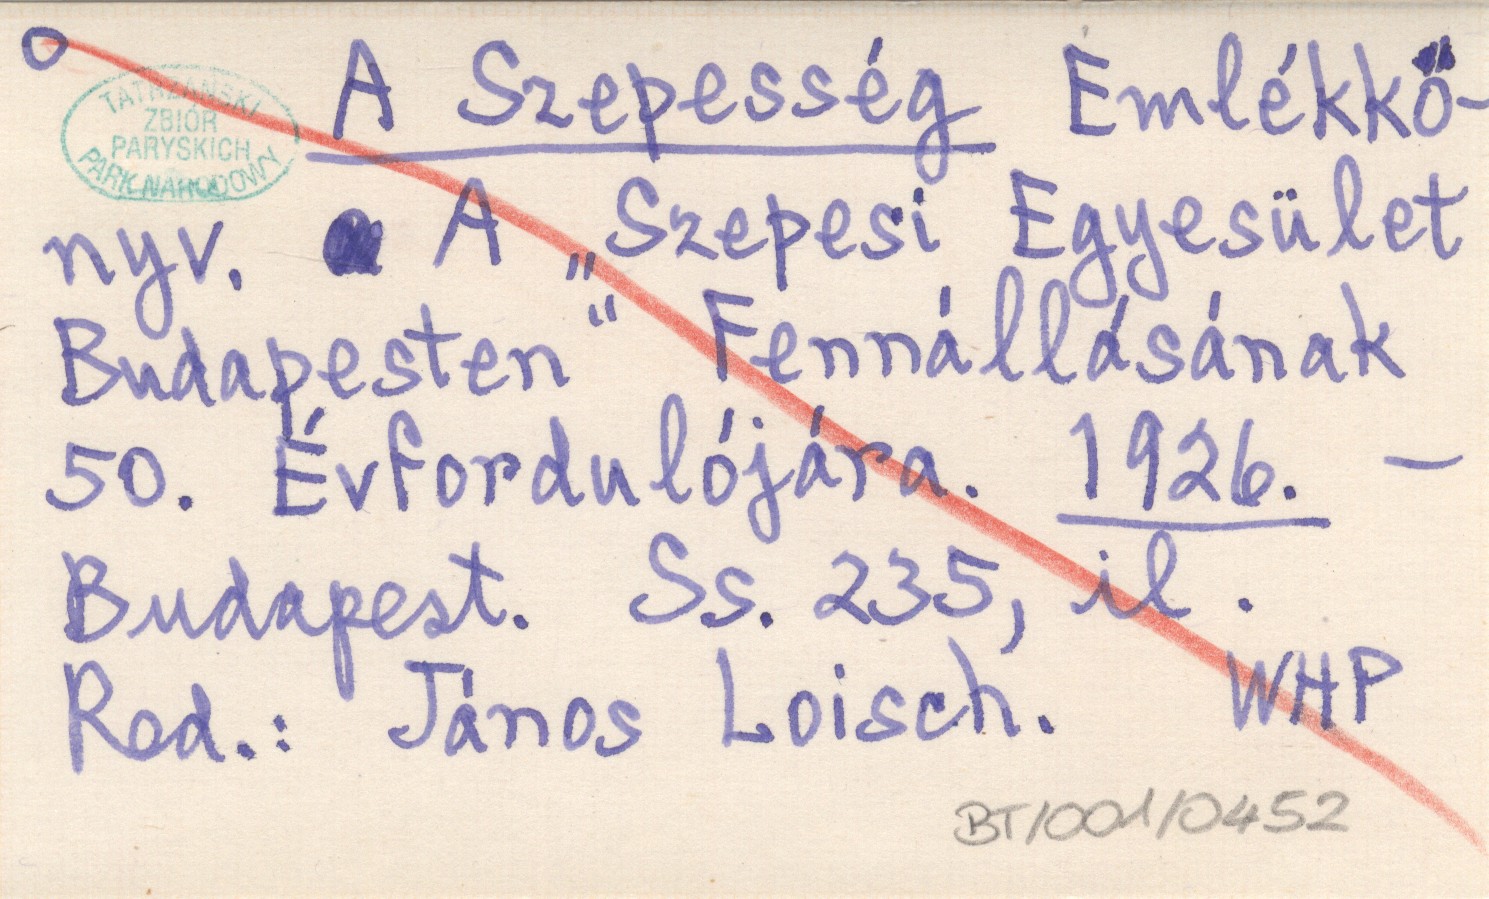 TATRZAŃSKI
ZBIÓR
PARYSKICH
PARK NARODOWY
A Szepesség Emlékkö-
nyv. A „Szepesi Egyesület
Budapesten“ Fennállásának
50. Évfordulójára. 1926. —
Budapest. Ss. 235, il.
Red.: János Loisch. WHP
BT/001/0452